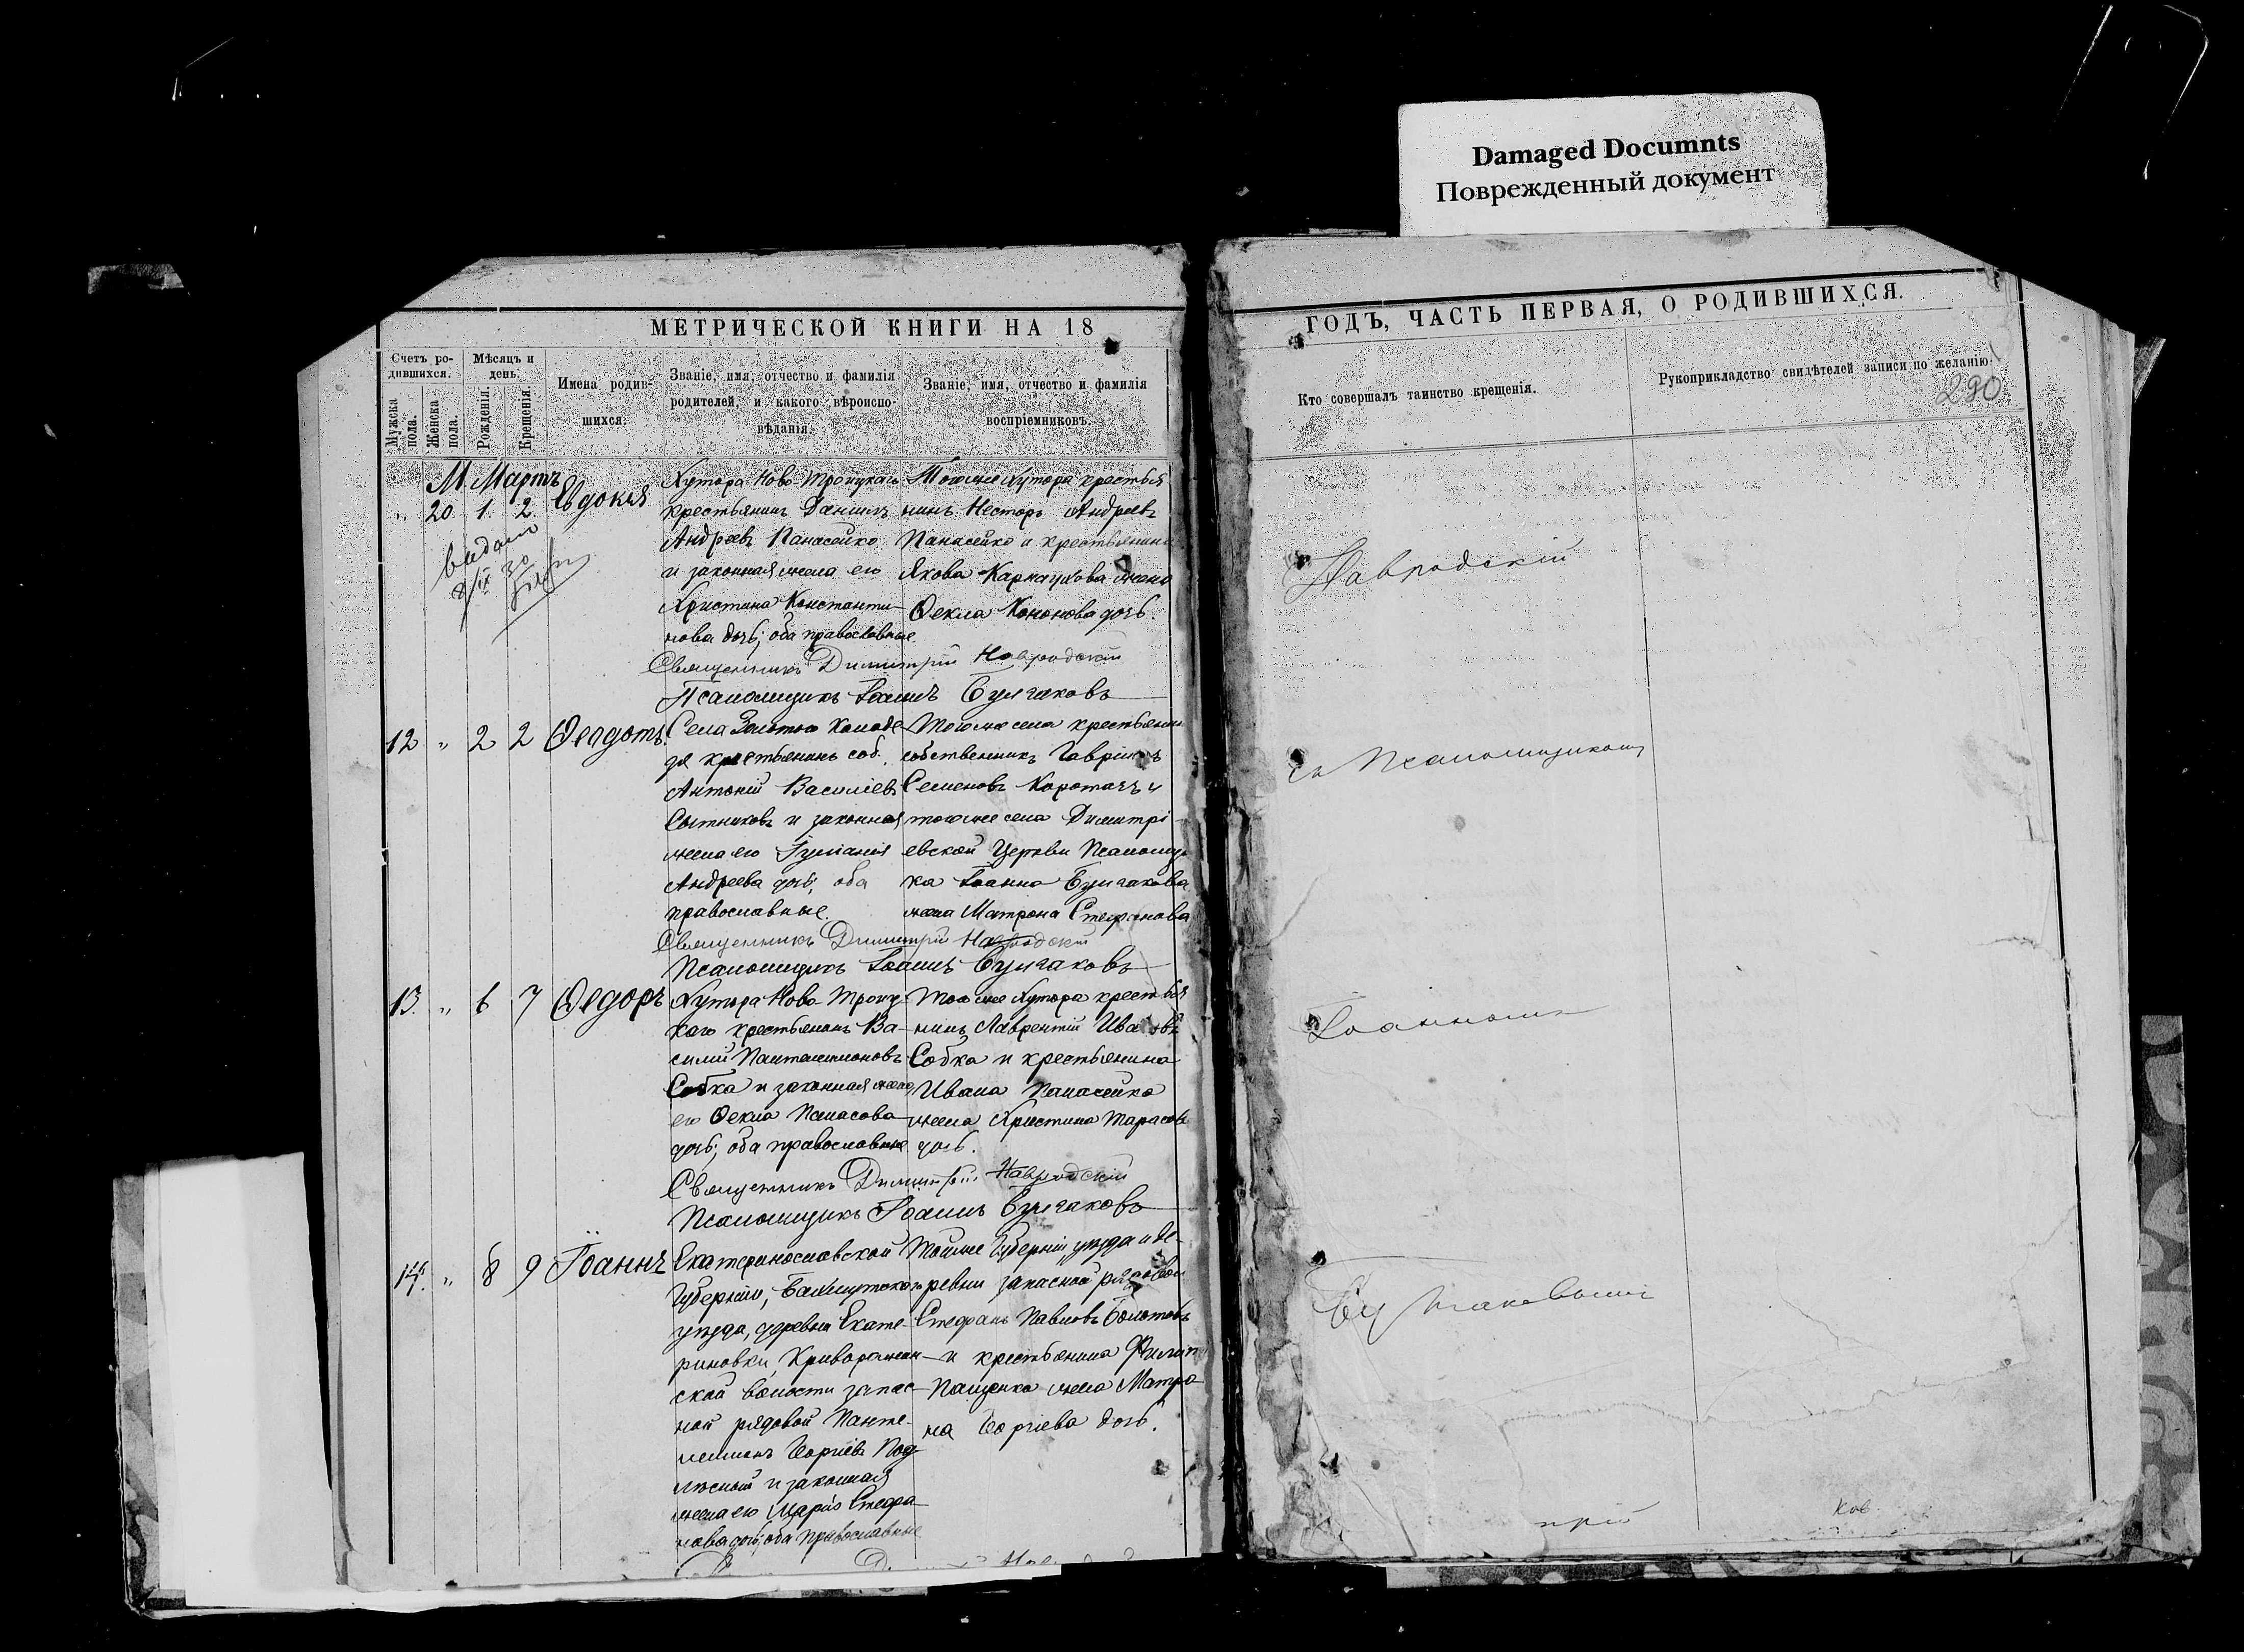 Damaged Documnts
Поврежденный документ
МЕТРИЧЕСКОЙ КНИГИ НА 18
ГОДЪ, ЧАСТЬ ПЕРВАЯ, О РОДИВШИХСЯ.
Счетъ ро-
дившихся.
Мужска
пола.
Женска
пола.
Мѣсяцъ и
день.
Рожденія.
Крещенія.
Имена родив-
шихся.
Званіе, имя, отчество и фамилія
родителей, и какого вѣроиспо-
вѣданія.
Званіе, имя, отчество и фамилія
воспріемниковъ.
Кто совершалъ таинство крещенія.
Рукоприкладство свидѣтелей записи по желанію.
290
М Мартъ
„ 20 1. 2. Евдокія
выдано
Хутора Ново-Троицкаго
крестьянинъ Даніилъ
Андреевъ Панасейко
и законная жена его
Христина Константи-
нова дочь; оба православные.
Тогоже хутора крестья
нинъ Несторъ Андреевъ
Панасейко и крестьянина
Якова Карнаухова жена
Ѳекла Кононова дочь.
Священникъ Димитрій Навродскій
Псаломщикъ Іоаннъ Булгаковъ
12 „ 2 2 Ѳеодотъ.
Села Золотого Колоде
зя крестьянинъ соб.
Антоній Василіевъ
Сытниковъ и законная
жена его Іуліанія
Андреева дочь; оба
православные.
Тогоже села крестьянин
собственникъ Гавріилъ
Семеновъ Коротачъ и
тогоже села Димитрі-
евской Церкви Псаломщи
ка Іоанна Булгакова
жена Матрона Стефанова
Священникъ Димитрій Навродскій
Псаломщикъ Іоаннъ Булгаковъ
13. „ 6 7 Ѳедоръ
Хутора Ново-Троиц
каго крестьянинъ Ва-
силій Пантелимоновъ
Собка и законная жена
его Ѳекла Панасова
дочь; оба православные
Тогоже хутора крестья
нинъ Лаврентій Ивановъ
Собка и крестьянина
Ивана Панасейка
жена Христина Тарасова
дочь.
Священникъ Димитрій Навродскій
Псаломщикъ Іоаннъ Булгаковъ
14. „ 8 9 Іоаннъ
Екатеринославской
Губерніи, Бахмутскаго
уѣзда, деревни Екате-
риновки, Криворожан-
ской волости запас-
ной рядовой Панте-
леимонъ Георгіевъ Под
лѣсный и законная
жена его Марія Стефа-
нова дочь; оба православные
Тойже Губерніи, уѣзда и де-
ревни запасной рядовой
Стефанъ Павловъ Болотовъ
и крестьянина Филип
Пащенка жена Матро
на Георгіева дочь.
Навродскій
съ Псаломщикомъ
Іоанномъ
Булгаковымъ